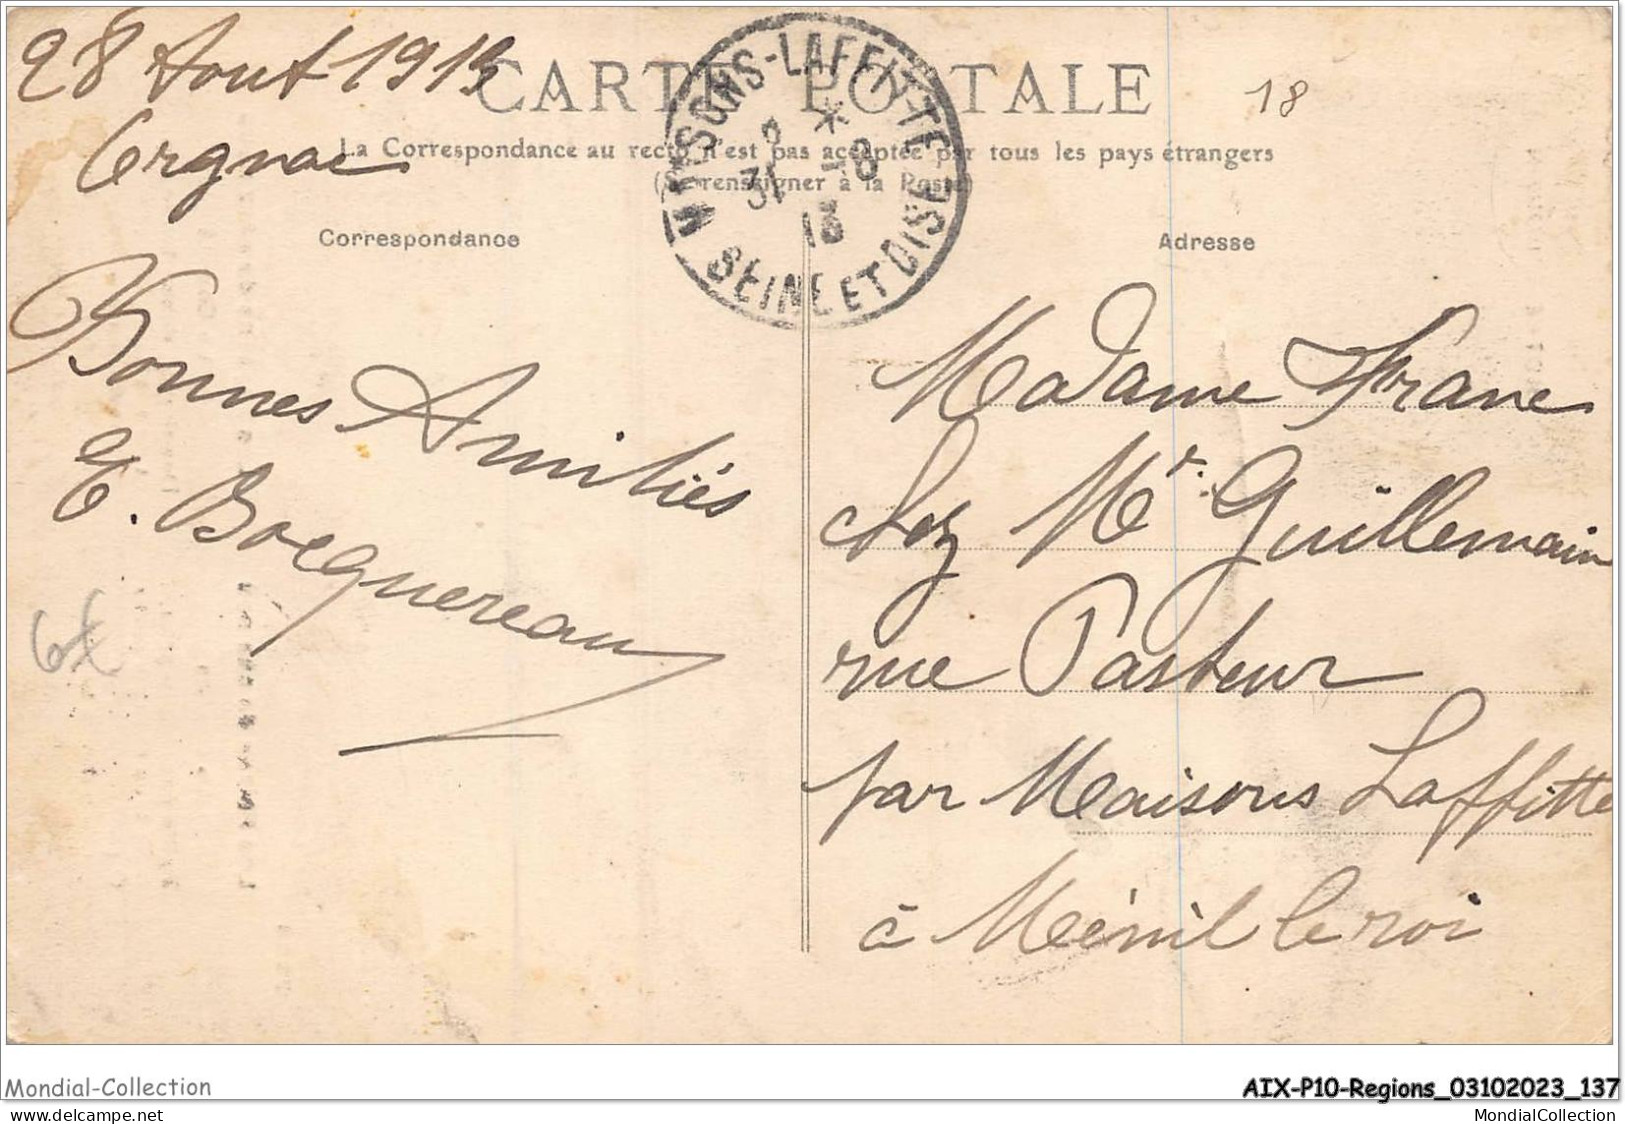 28 Aout 1913
CARTE POSTALE
18
Orgnac
La Correspondance au recto n'est pas acceptée par tous les pays étrangers
(Se renseigner à la Poste)
MAISONS-LAFFITTE
31 - 8
13
SEINE ET OISE
Correspondance
Adresse
Bonnes Amitiés
E. Bocquereau
6€
Madame Franc
chez Mr. Guillemain
rue Pasteur
par Maisons Laffitte
à Ménil le roi
Mondial-Collection
AIX-P10-Regions_03102023_137
delcampe.net
MondialCollection